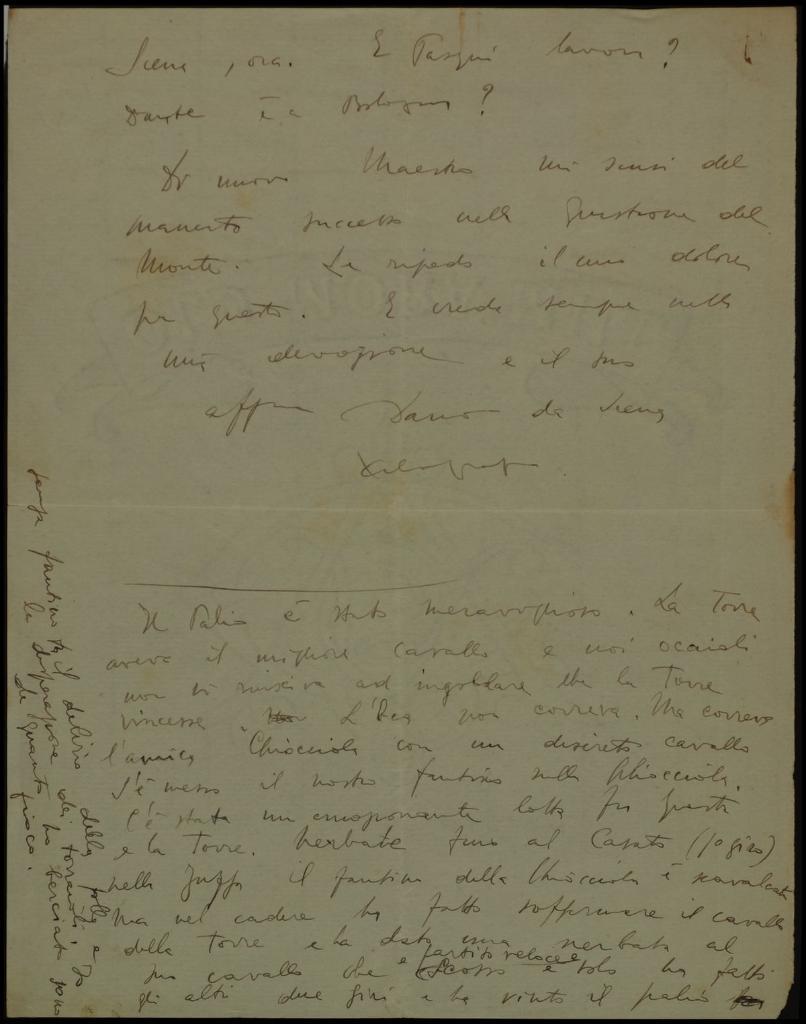 Siena, ora. E Pasqui lavora?
Dante è a Bologna?
Di nuovo Maestro mi scusi del
mancato successo nella questione del
Monte. Le ripeto il mio dolore
per questo. E creda sempre nella
mia devozione e il suo
affmo da Siena
Il Palio è stato meraviglioso. La Torre
aveva il migliore cavallo e noi ocaioli
non si riusciva ad ingoldare che la Torre
vincesse. L'Oca non correva. Ma correva
l'amica Chiocciola con un discreto cavallo
S'è messo il nostro fantino sulla Chiocciola.
C'è stata una emozionante lotta fra questa
e la Torre. Nerbate fino al Casato (1o giro)
nella zuffa il fantino della Chiocciola è scavalcato
Ma nel cadere ha fatto soffermare il cavallo
della Torre e ha dato una nerbata al
suo cavallo che scosso è partito veloce e solo ha fatto
gli altri due giri e ha vinto il palio
senza fantino tra il delirio della folla e
la disperazione dei torraioli. Io
ho berciato sono
fioco.